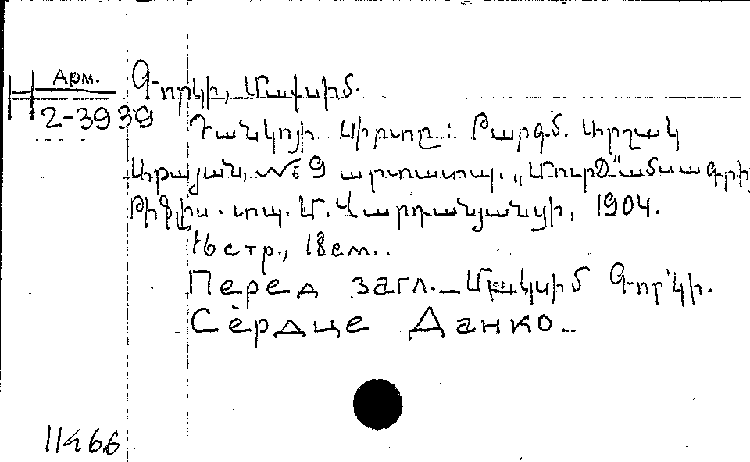 Арм.
Н 2-3939
Գորկի, Մաքսիմ.
Դանկոյի սիրտը: Թարգմ. Արշակ
№ 9 արտատպ. „Մուրճ" ամսագրի
Թիֆլիս. տպ. Մ. Վարդանյանցի, 1904.
16 стр., 18 см..
Перед загл. — Մաքսիմ Գոր'կի.
Сердце Данко. —
11466